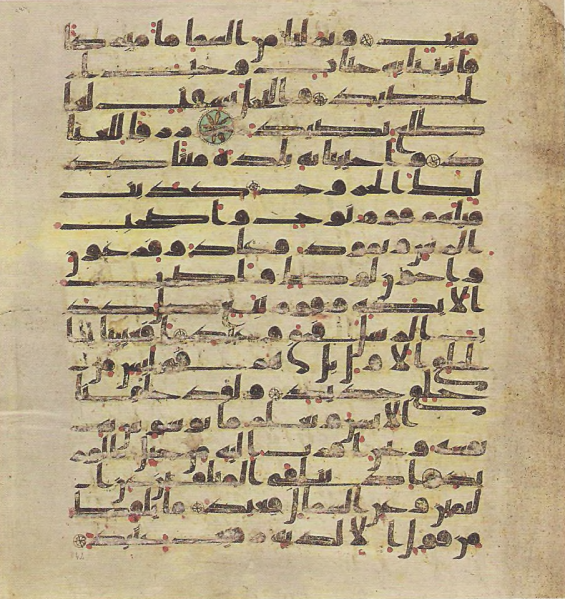 منيب ونزلنا من السما ما مبركا
فانبتنا به جنت وحب ا
لحصيد والنخل بسقت لها
طلع نضيد رزقا للعبا
د واحيينا به بلدة ميتا كذ
لك الخروج كذبت
قبلهم قوم نوح واصحب
الرس وثمود وعاد وفرعون
واخون لوط واصحب
الايكة وقوم تبع كل كذ
ب الرسل فحق وعيد افعيينا با
لخلق الاول بل هم في لبس من
خلق جديد ولقد خلقنا
الانسن ونعلم ما توسوس به
نفسه ونحن اقرب اليه من حبل الور
يد اذ يتلقى المتلقين عن ا
ليمين وعن الشمال قعيد ما يلفظ
من قول الا لديه رقيب عتيد